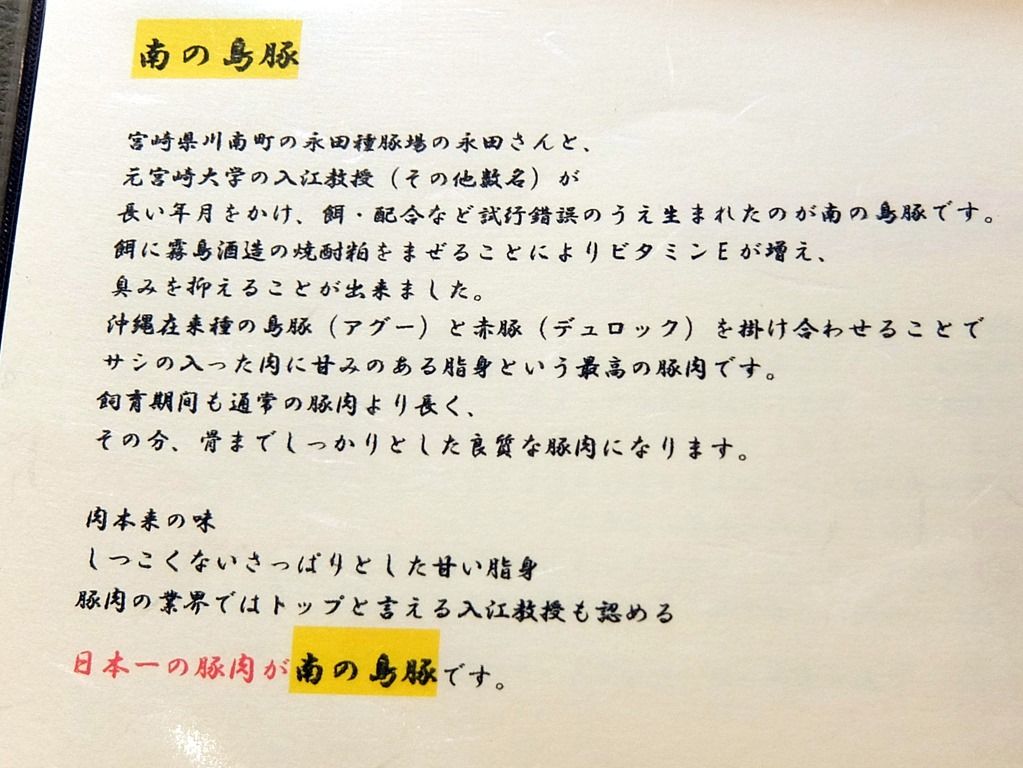 南の島豚
宮崎県川南町の永田種豚場の永田さんと、
元宮崎大学の入江教授（その他数名）が
長い年月をかけ、餌・配合など試行錯誤のうえ生まれたのが南の島豚です。
餌に霧島酒造の焼酎粕をまぜることによりビタミンＥが増え、
臭みを抑えることが出来ました。
沖縄在来種の島豚（アグー）と赤豚（デュロック）を掛け合わせることで
サシの入った肉に甘みのある脂身という最高の豚肉です。
飼育期間も通常の豚肉より長く、
その分、骨までしっかりとした良質な豚肉になります。
肉本来の味
しつこくないさっぱりとした甘い脂身
豚肉の業界ではトップと言える入江教授も認める
日本一の豚肉が南の島豚です。